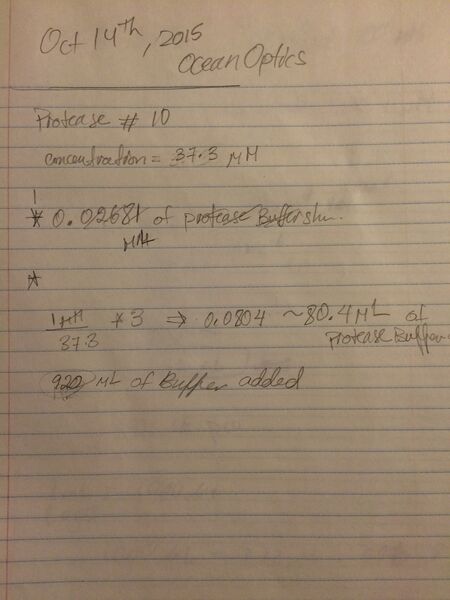 Oct 14th, 2015
Ocean Optics
Protease # 10
concentration = 37.3 μM
* 0.02681 of protease Buffer
μM
*
1μM/37.3 * 3 ⇒ 0.0804 ~80.4 μL of
Protease Buffer
920 μL of Buffer added